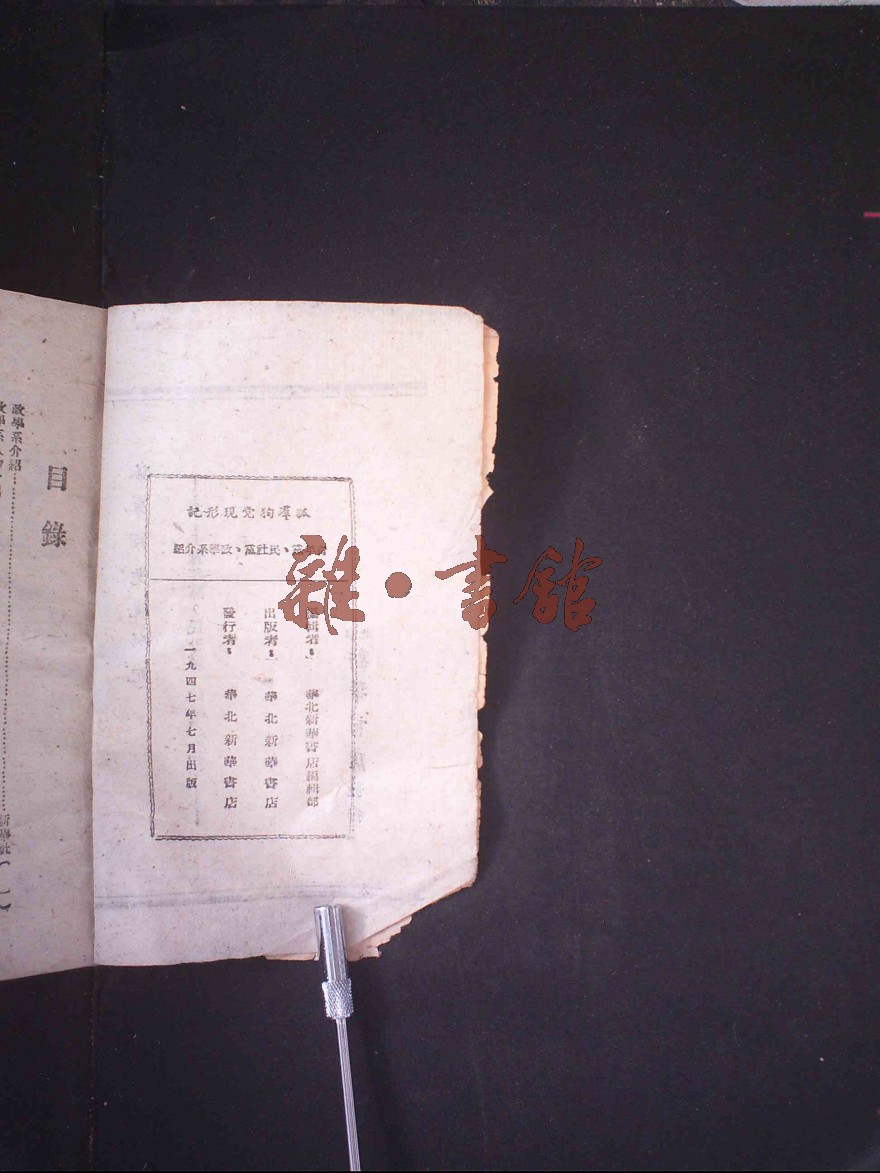 狐羣狗党現形記
青年黨、民社黨、政學系介紹
編輯者： 華北新華書店編輯部
出版者： 華北新華書店
發行者： 華北新華書店
一九四七年七月出版
目錄
政學系介紹……新華社（一）
政學系
雜·書館